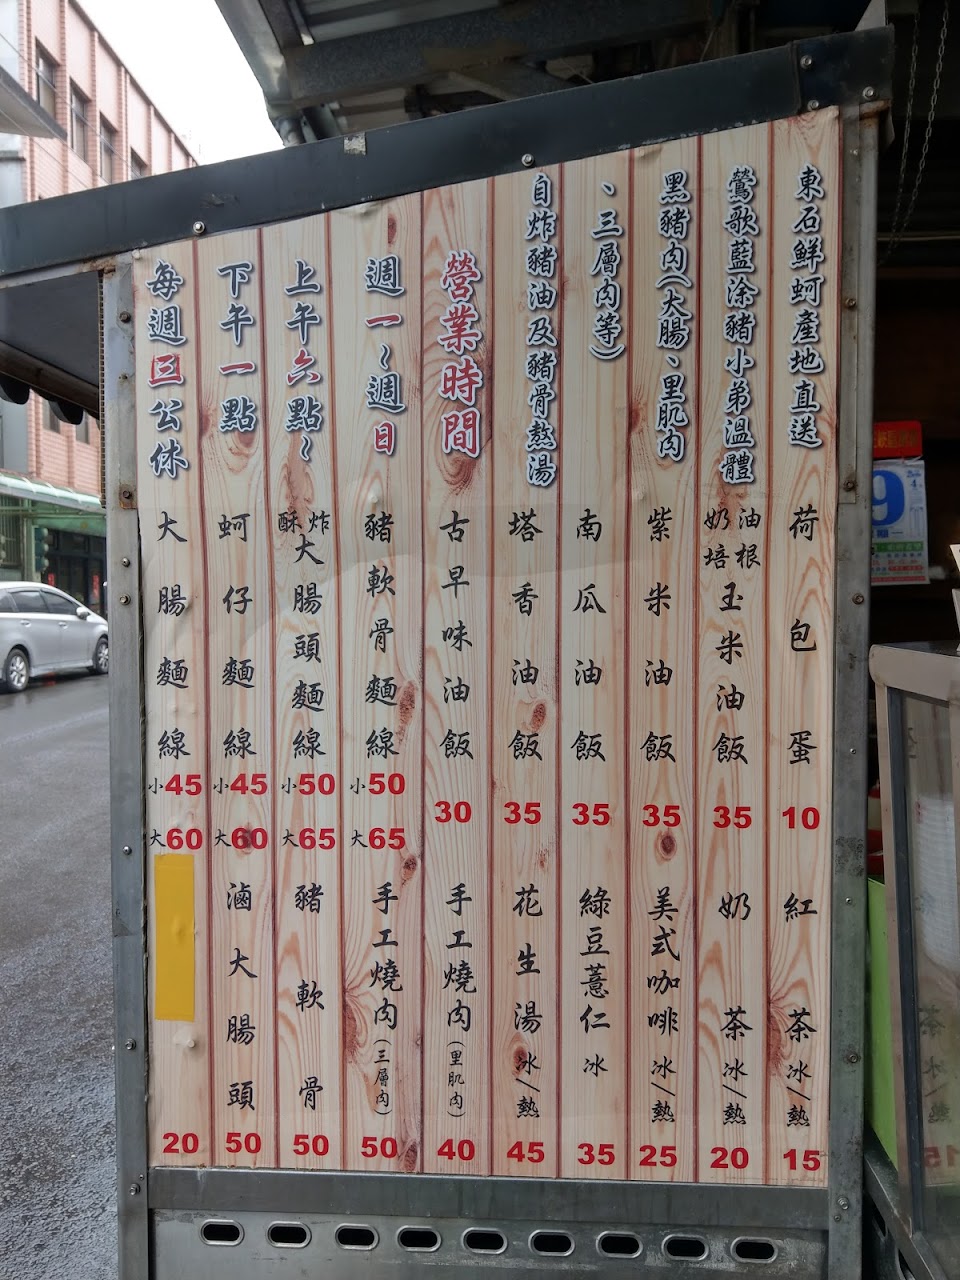 東石鮮蚵產地直送
鶯歌藍涂豬小弟溫體
黑豬肉(大腸、里肌肉
、三層肉等)
自炸豬油及豬骨熬湯
營業時間
週一~週日
上午六點~
下午一點
每週三公休
荷包蛋 10
奶油培根玉米油飯 35
紫米油飯 35
南瓜油飯 35
塔香油飯 35
古早味油飯 30
豬軟骨麵線 小50 大65
酥炸大腸頭麵線 小50 大65
蚵仔麵線 小45 大60
大腸麵線 小45 大60
紅茶 冰/熱 15
奶茶 冰/熱 20
美式咖啡 冰/熱 25
綠豆薏仁 冰 35
花生湯 冰/熱 45
手工燒肉(里肌肉) 40
手工燒肉(三層肉) 50
豬軟骨 50
滷大腸頭 50
20
9